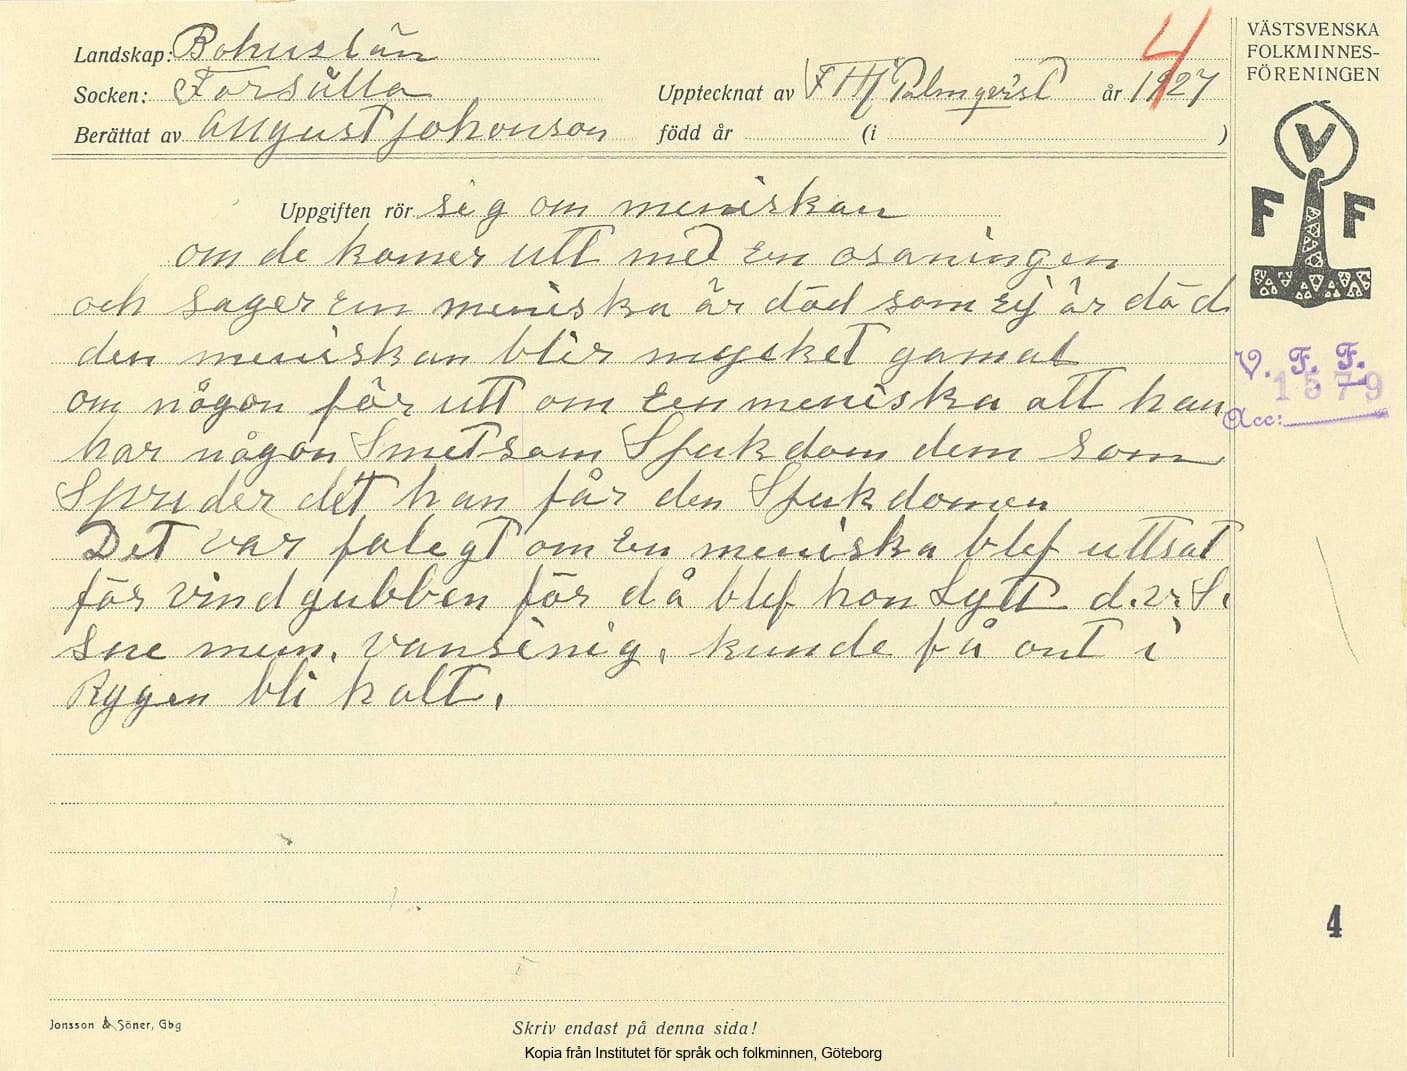 Landskap: Bohuslän
Socken: Forsälla
Berättat av August Johonson
Upptecknat av Palmqvist år 1927
född år (i )
4
VÄSTSVENSKA
FOLKMINNES-
FÖRENINGEN
V
F F
Uppgiften rör sig om meniskan
om de komer utt med en osaningen
och sager en meniska är död som Ej är död
den meniskan blir mycket gamal
om någon får utt om Een meniska att han
har någon Smetsom Sjukdom dem som
Spruder det han får den Sjukdomen
Det var falegt om En meniska blef uttsat
för vindgubben för då blef hon Lytt d.v.S.
sne mun. vansinig. kunde få ont i
Rygen bli halt.
V. F. F.
1579
Acc:
4
Jonsson & Söner, Gbg
Skriv endast på denna sida!
Kopia från Institutet för språk och folkminnen, Göteborg